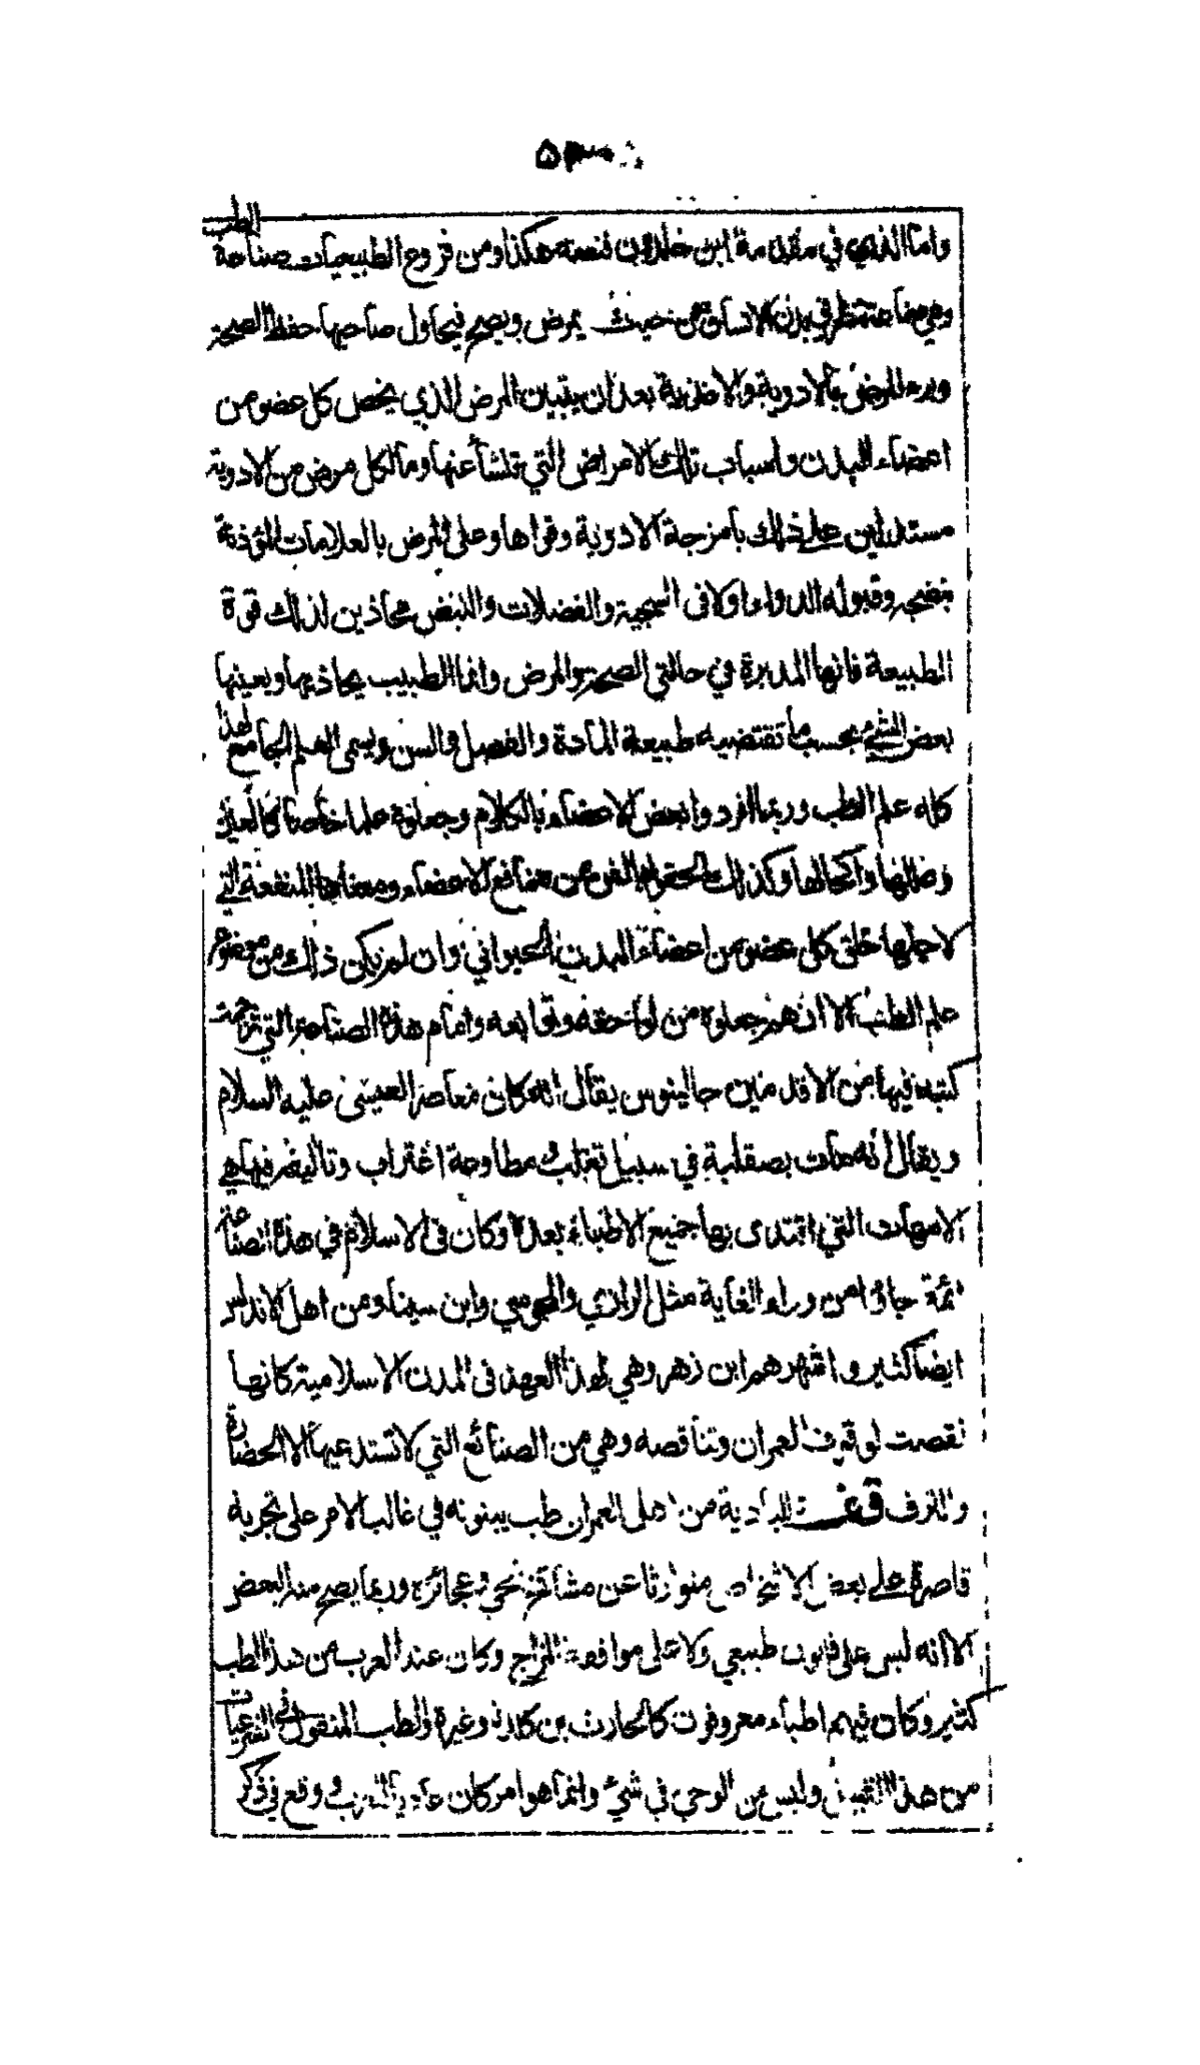 واما الذي في مقدمة ابن خلدون فنصه هكذا ومن فروع الطبيعيات صناعة الطب
وهي صناعة تنظر في بدن الانسان من حيث يمرض ويصح فيحاول صاحبها حفظ الصحة
وبرء المرض بالادوية والاغذية بعد ان يتبين المرض الذي يخص كل عضو من
اعضاء البدن واسباب تلك الامراض التي تنشأ عنها وما لكل مرض من الادوية
مستدلين على ذلك بامزجة الادوية وقواها وعلى المرض بالعلامات المؤذنة
بنضجه وقبوله الدواء اولا في السجية والفضلات والنبض محاذين لذلك قوة
الطبيعة فانها المدبرة في حالتي الصحة والمرض وانما الطبيب يحاذيها ويعينها
بعض الشئ بحسب ما تقتضيه طبيعة المادة والفصل والسن ويسمى العلم الجامع لهذا
كله علم الطب وربما افردوا بعض الاعضاء بالكلام وجعلوه علما خاصا كالعين
وعللها واكحالها وكذلك الحقوا بالفن من منافع الاعضاء ومعناها المنفعة التي
لاجلها خلق كل عضو من اعضاء البدن الحيواني وان لم يكن ذلك من موضوع
علم الطب الا انهم جعلوه من لواحقه وتوابعه وامام هذه الصناعة التي ترجمت
كتبه فيها من الاقدمين جالينوس يقال انه كان معاصرا لعيسى عليه السلام
ويقال انه مات بصقلية في سبيل تغلب ومطاوعة اغتراب وتاليفه فيها هي
الامهات التي اقتدى بها جميع الاطباء بعده وكان في الاسلام في هذه الصناعة
ائمة جاؤا من وراء الغاية مثل الرازي والمجوسي وابن سينا ومن اهل الاندلس
ايضا كثير واشهرهم ابن زهر وهي لهذا العهد في المدن الاسلامية كانها
نقصت لوقوف العمران وتناقصه وهي من الصنائع التي لا تستدعيها الا الحضارة
والترف البادية من اهل العمران طب يبنونه في غالب الامر على تجربة
قاصرة على بعض الاشخاص متوارثا عن مشائخ الحي وعجائزه وربما يصح منه البعض
الا انه ليس على قانون طبيعي ولا على موافقة المزاج وكان عند العرب من هذا الطب
كثير وكان فيهم اطباء معروفون كالحارث بن كلدة وغيره والطب المنقول في الشرعيات
من هذا القبيل وليس من الوحي في شيء وانما هو امر كان عاديا للعرب ووقع في ذكر